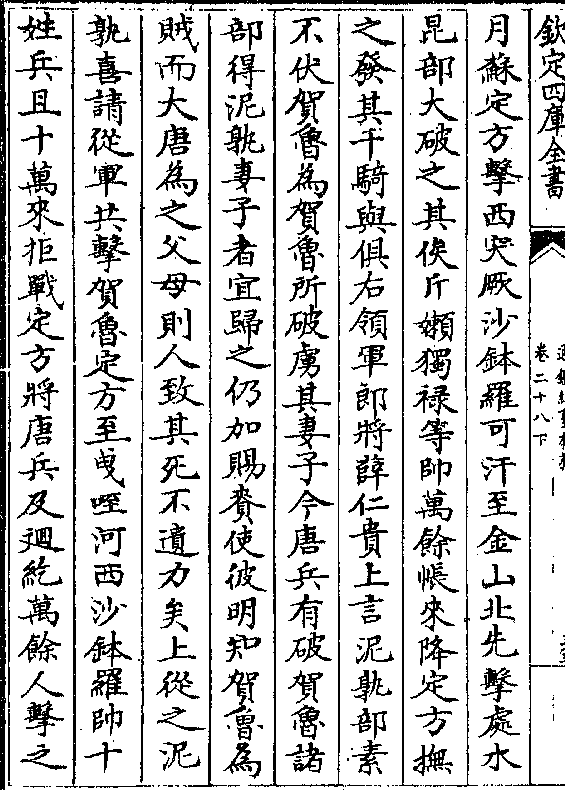 欽定四庫全書
卷二十八下
月蘇定方擊西突厥沙鉢羅可汗至金山北先擊處水
昆部大破之其俟斤嬾獨祿等帥萬餘帳來降定方撫
之發其千騎與俱右領軍郎將薛仁貴上言泥孰部素
不伏賀魯為賀魯所破虜其妻子今唐兵有破賀魯諸
部得泥孰妻子者宜歸之仍加賜賚使彼明知賀魯為
賊而大唐為之父母則人致其死不遺力矣上從之泥
孰喜請從軍共擊賀魯定方至曵咥河西沙鉢羅帥十
姓兵且十萬來拒戰定方將唐兵及迴紇萬餘人擊之